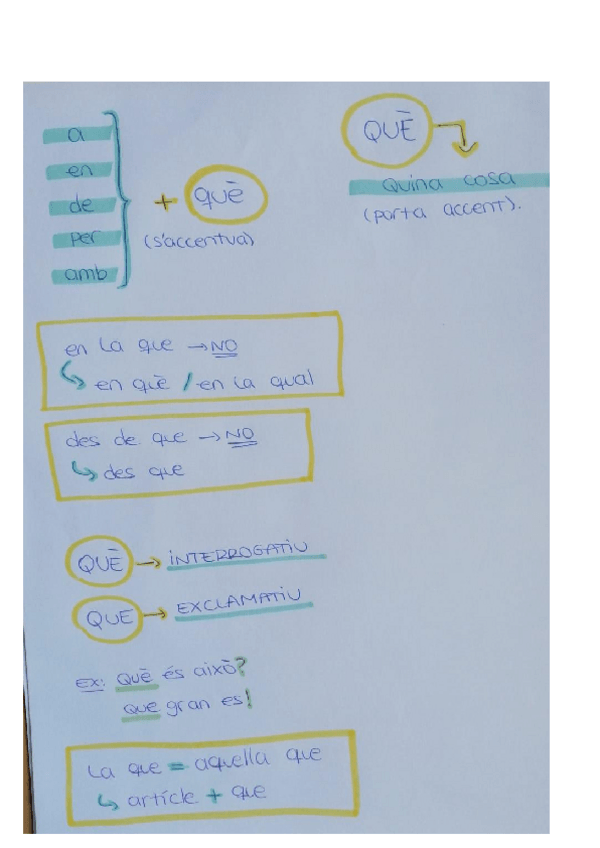 a
en
de
per
amb
+ què
(s'accentua)
QUÈ
Quina cosa
(porta accent).
en la que → NO
↳ en què / en la qual
des de que → NO
↳ des que
QUÈ → INTERROGATIU
QUE → EXCLAMATIU
ex: Què és això?
que gran es!
La que = aquella que
↳ article + que